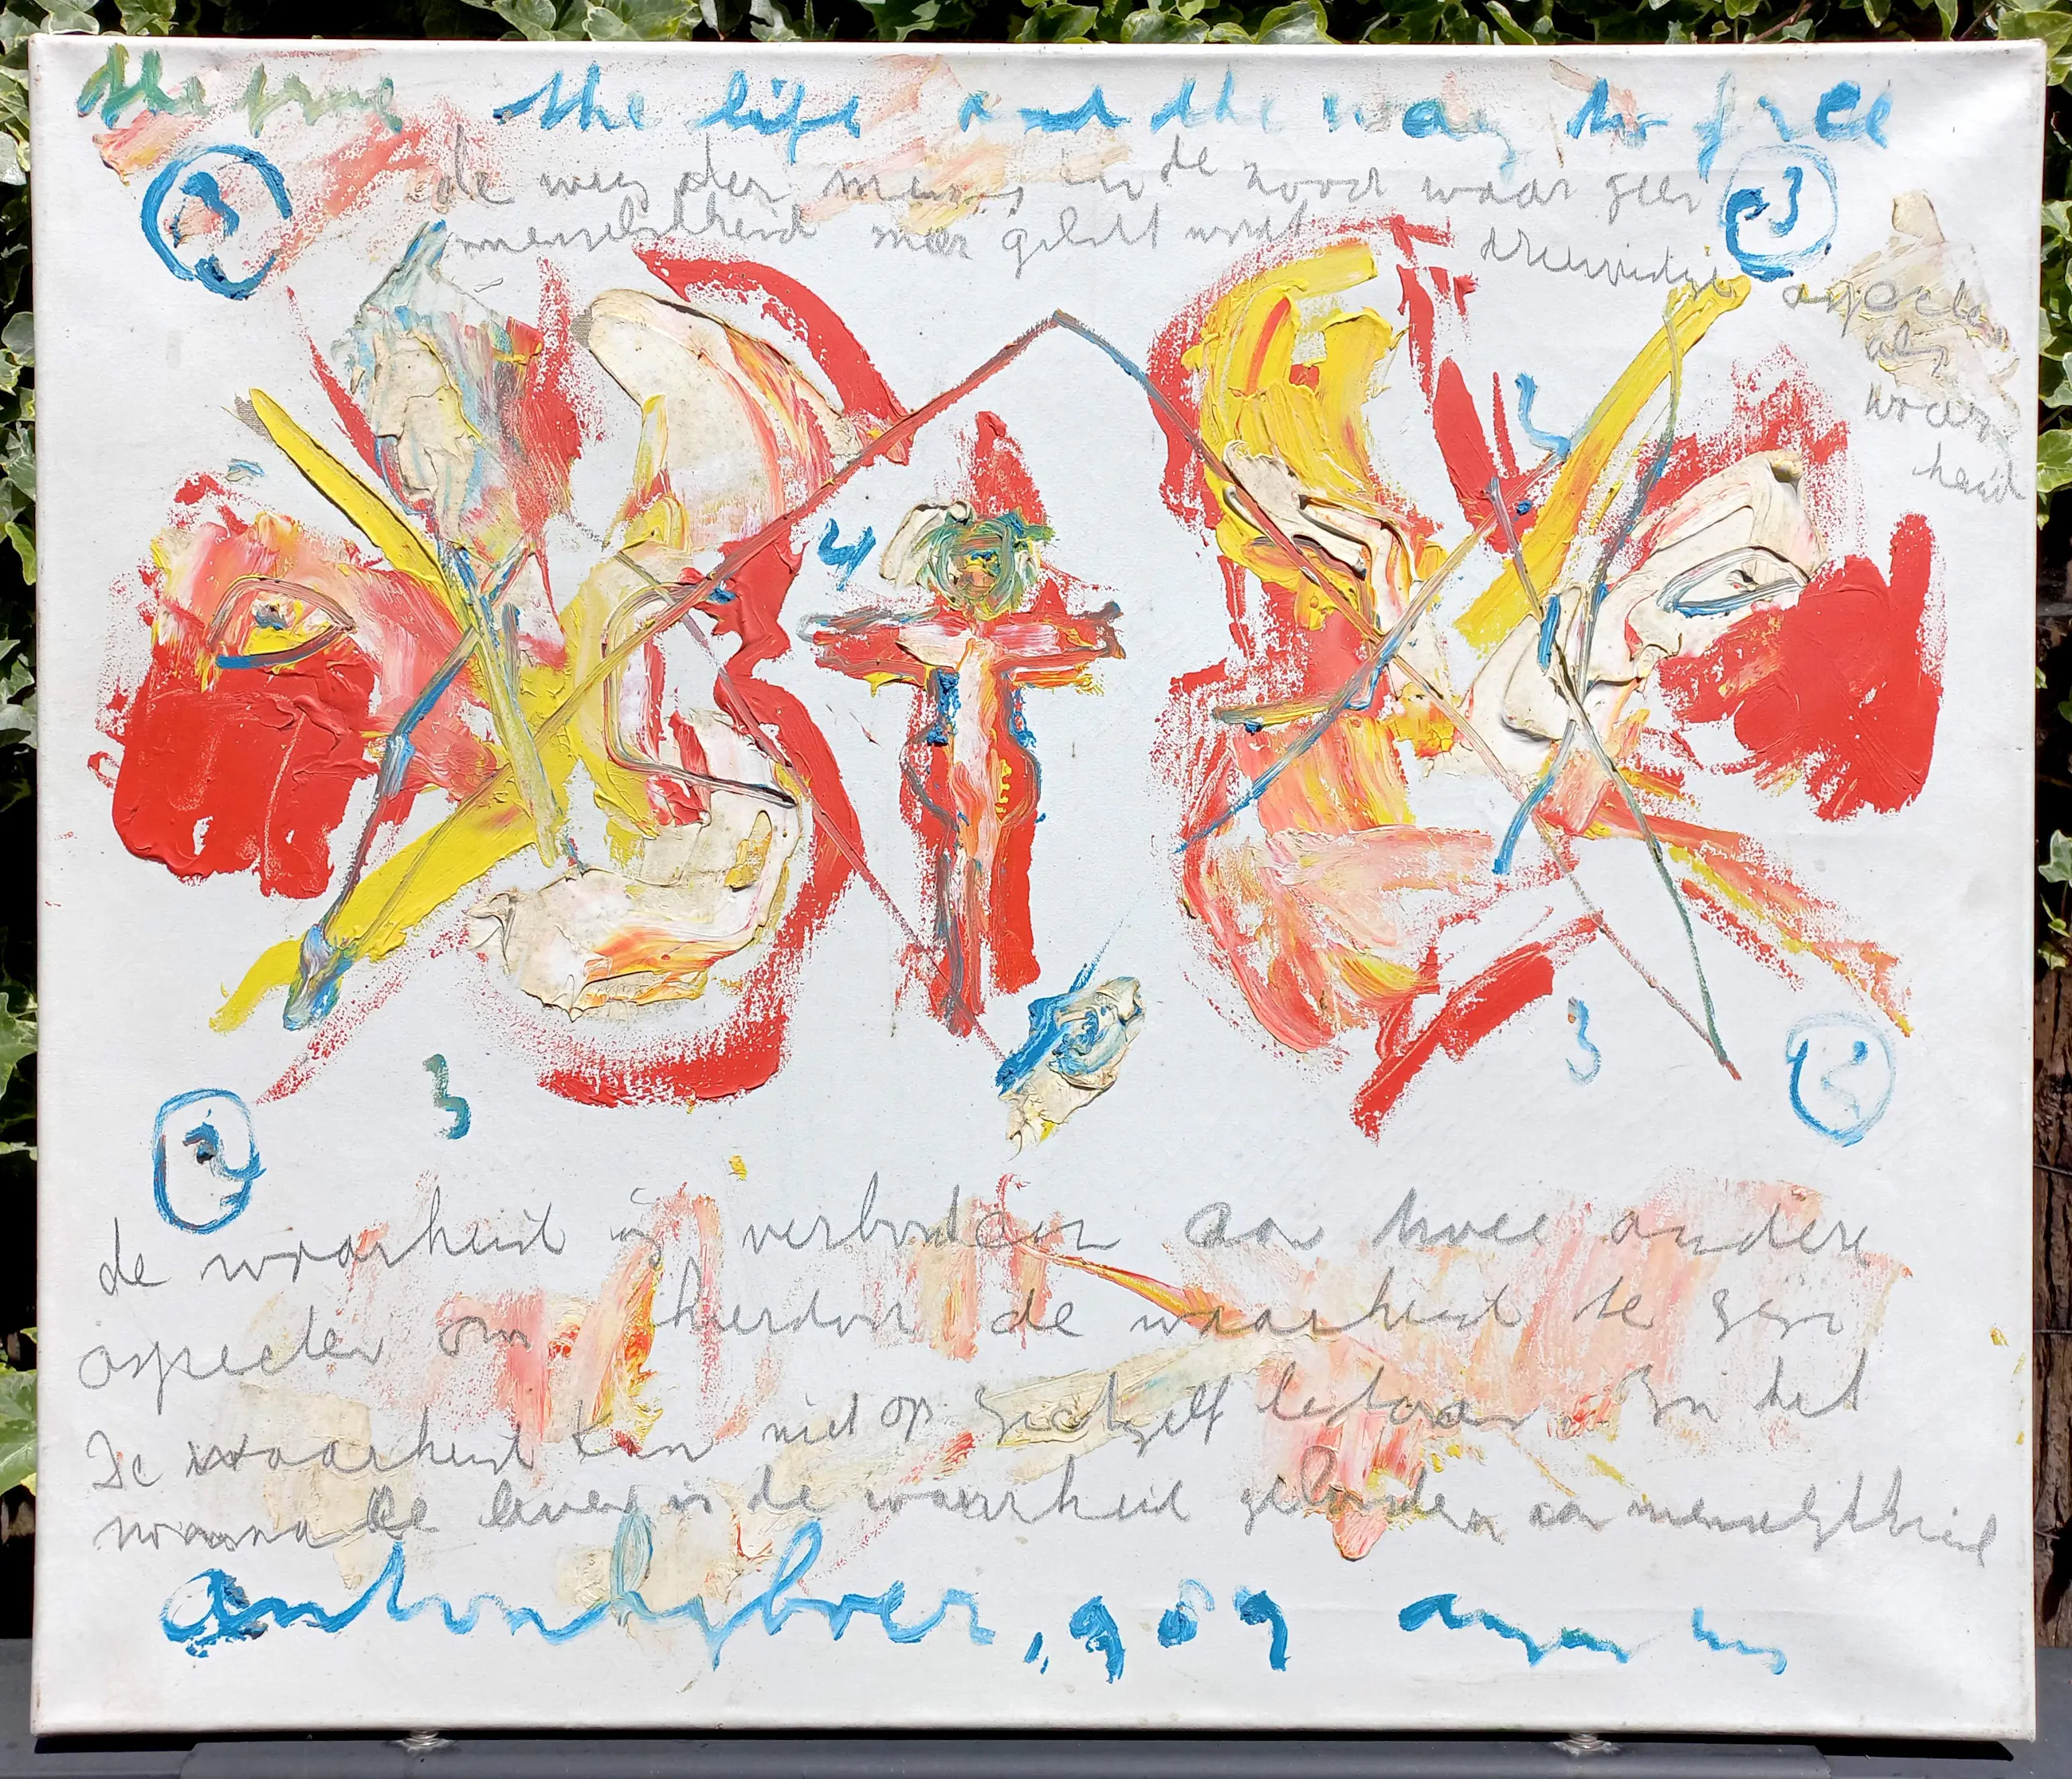 the true the life and the way to free
3
3
de weg der mens in de nood waar geen
menselijkheid meer geduld wordt
drievuldige aspecten
als
waar
heid
2
4
3
3
2
2
de waarheid is verbonden aan twee andere
aspecten om hierdoor de waarheid te zijn
De waarheid kan niet op zichzelf bestaan. In het
leven is de waarheid gebonden aan menselijkheid
anton heyboer, 1989 augustus